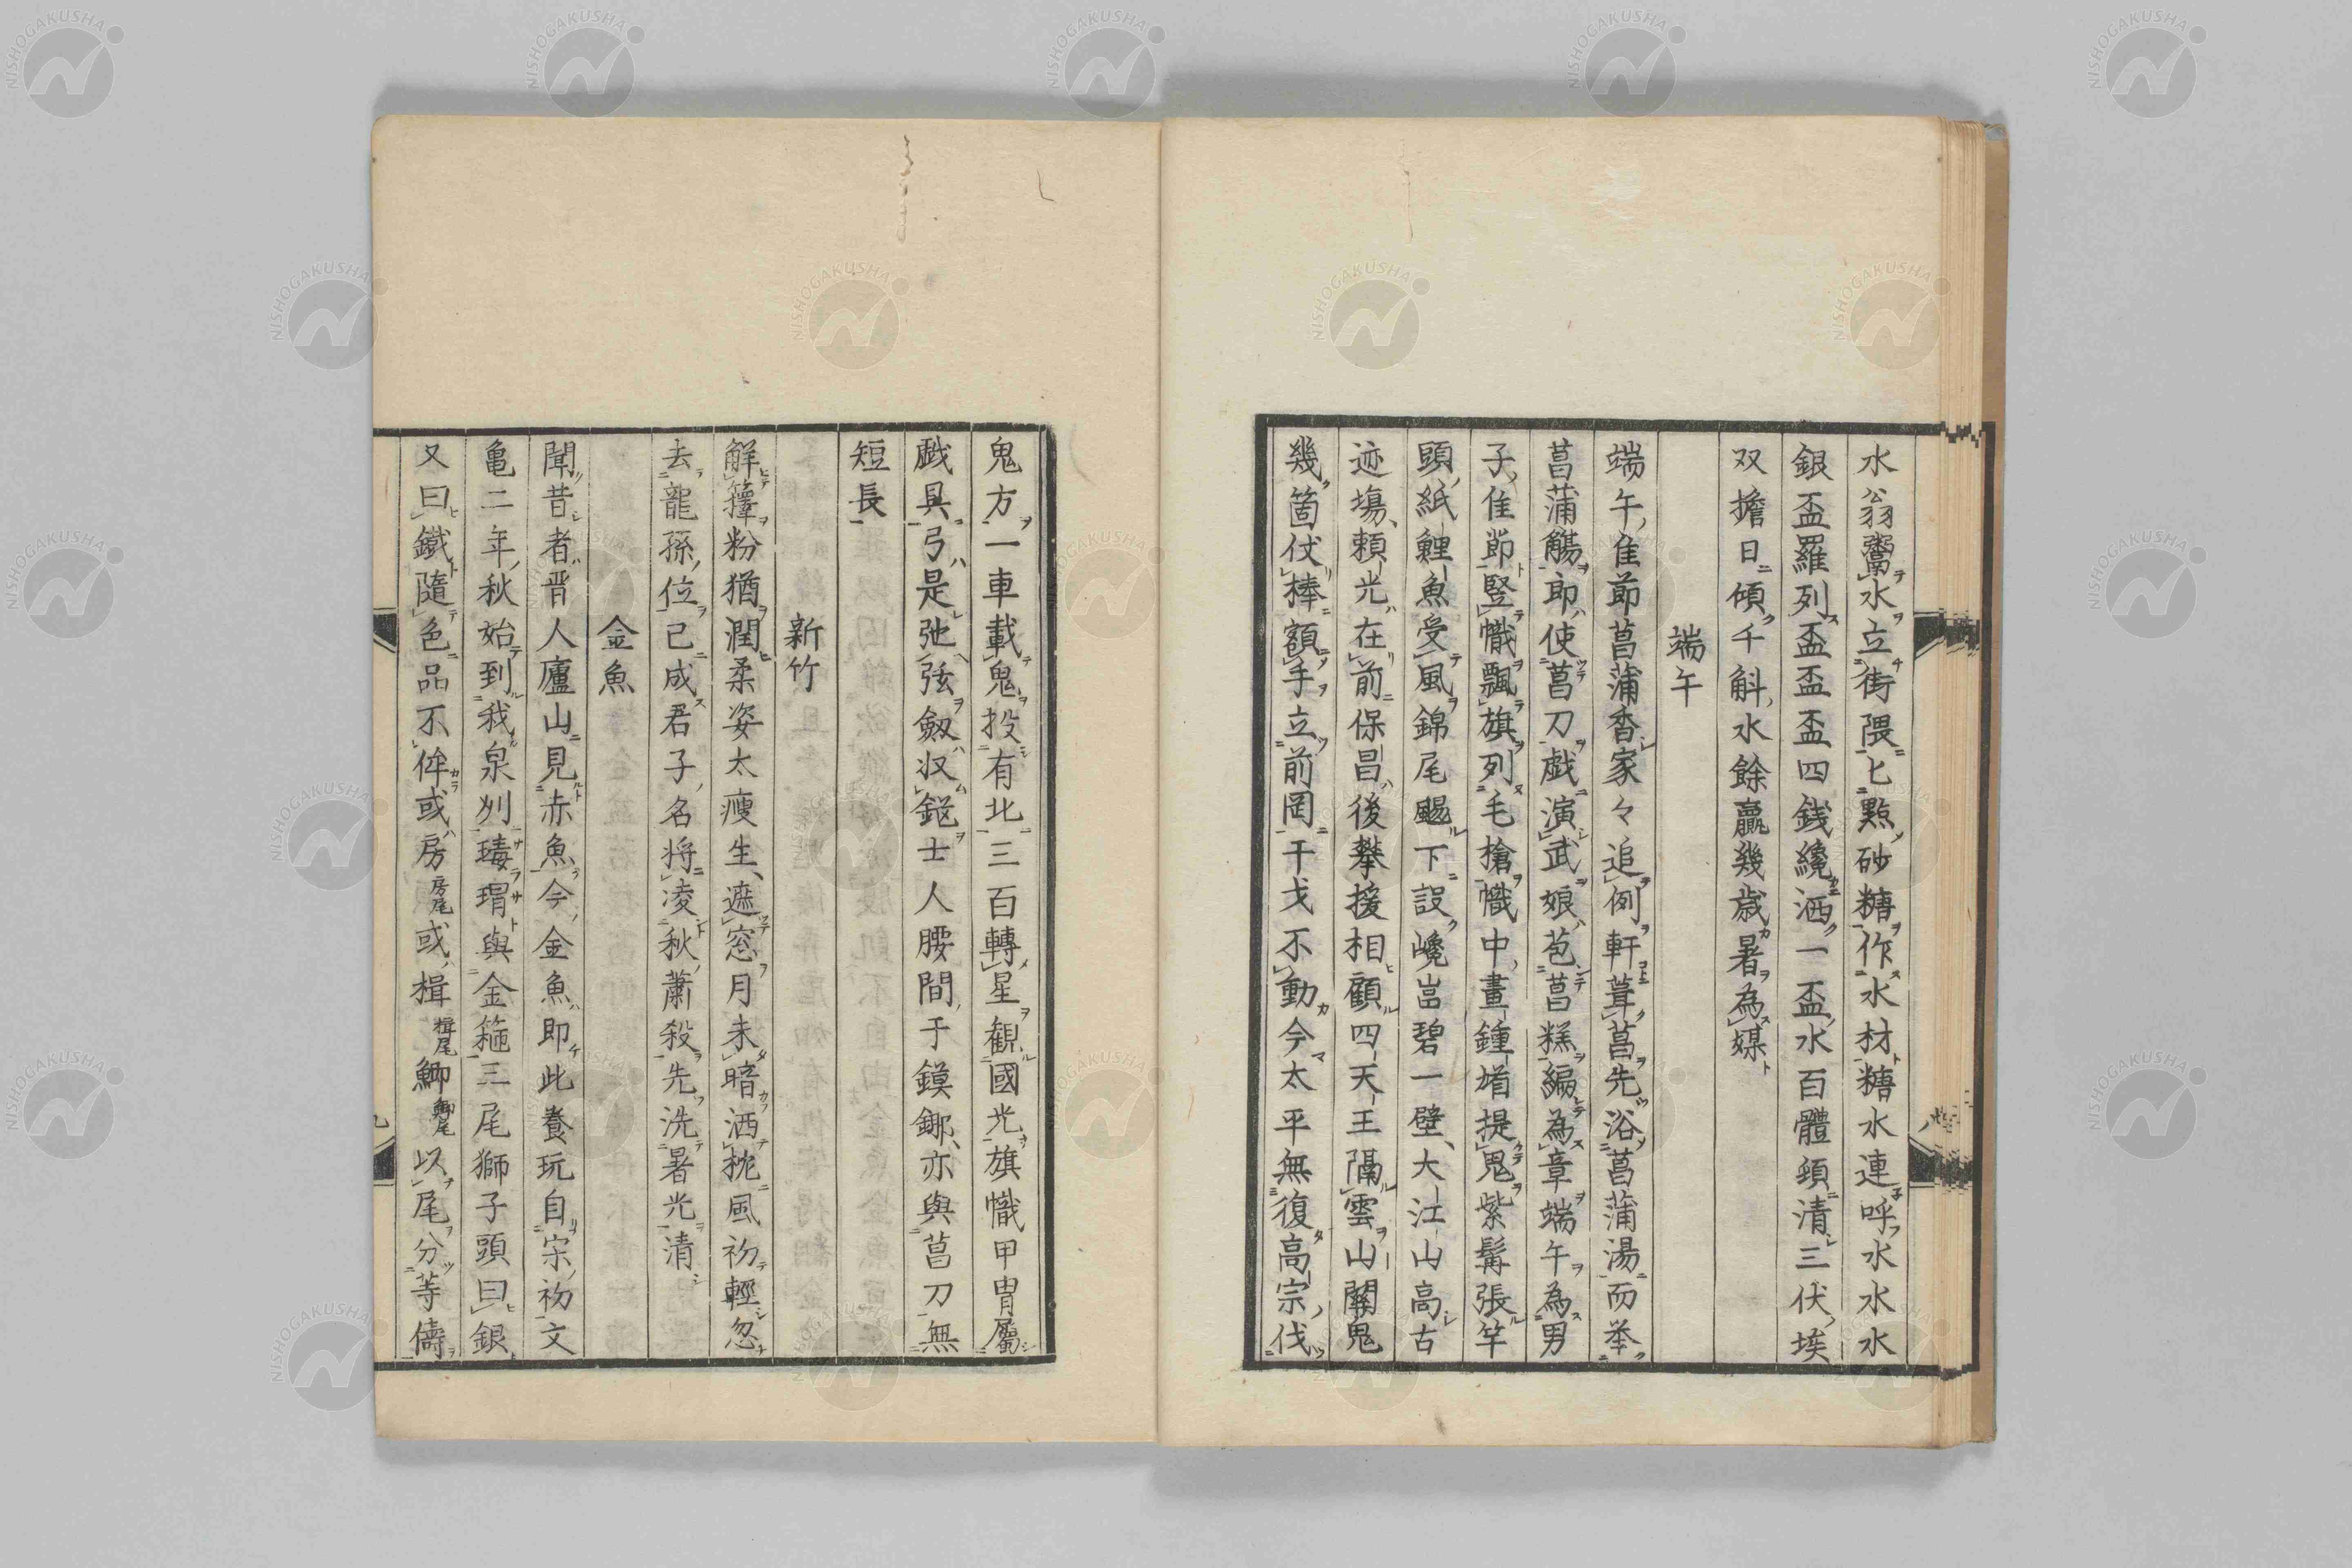 水翁鬻水立街隈匕點砂糖作氷材糖水連呼水水水
銀盃羅列盃盃盃四銭纔洒一盃水百體頚清三伏埃
双擔日傾千斛水餘贏幾歳暑為媒
端午
端午佳節菖蒲香家々追例軒葺菖先浴菖蒲湯而挙
菖蒲觴郎使菖刀戯演武娘苞菖糕編為章端午為男
子佳節竪幟飄旗列毛槍幟中畫鍾馗提鬼紫髯張竿
頭紙鯉魚受風錦尾颺下設巉嵓碧一壁大江山高古
迹場頼光在前保昌後攀援相顧四天王隔雲山關鬼
幾箇伏棒額手立前罔干戈不動今太平無復高宗伐
鬼方一車載鬼投有北三百轉星觀國光旗幟甲冑屬
戯具弓是弛弦劔収鋩士人腰間于鏌鋣亦與菖刀無
短長
新竹
解籜粉猶潤柔姿太瘦生遮窓月未暗洒枕風初輕忽
去龍孫位已成君子名将凌秋蕭殺先洗暑光清
金魚
聞昔者晋人廬山見赤魚今金魚即此養玩自宋初文
亀二年秋始到我泉州瑇瑁與金箍三尾獅子頭曰銀
又曰鐵隨色品不侔或房房尾或楫楫尾鯽鯽尾以尾分等儔